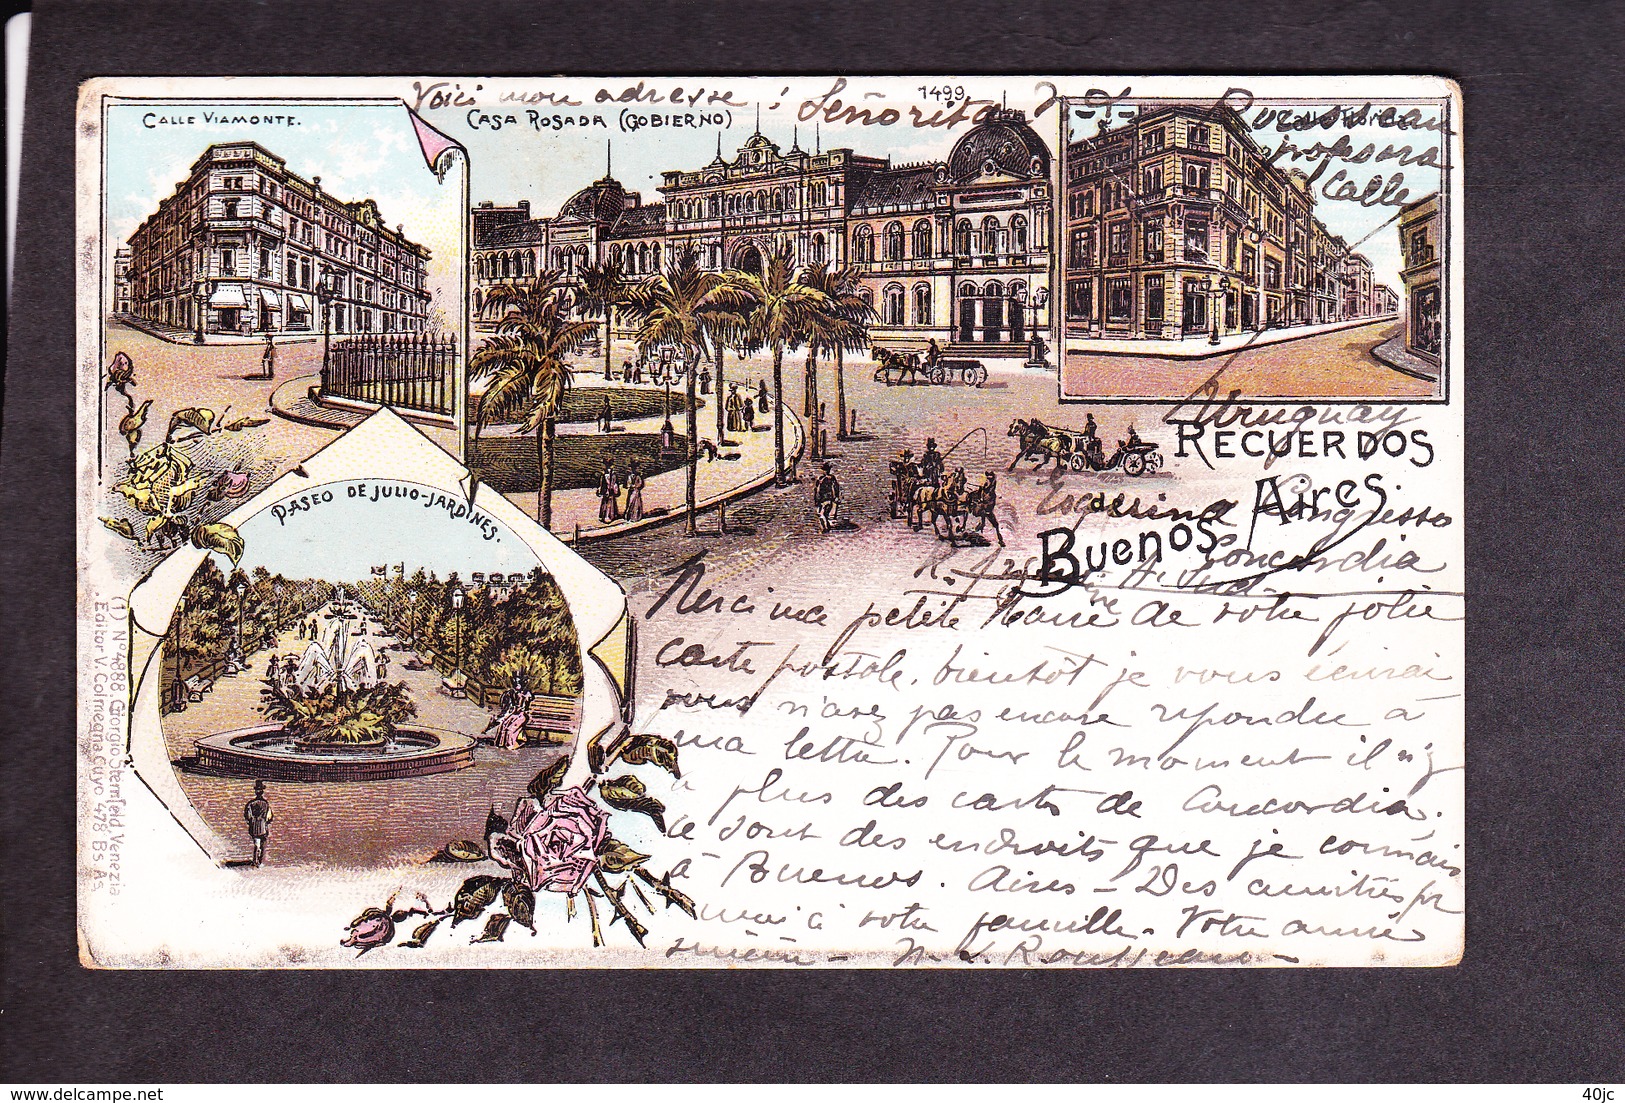 Voici mon adresse : Señorita N. L. Rousseau
profesora
Calle
Uruguay
Esquina Congresso
Concordia
R. Arg
A. Sud
1499
CALLE VIAMONTE.
CASA ROSADA (GOBIERNO)
Calle Florida
PASEO DE JULIO-JARDINES.
RECUERDOS
de
BUENOS AIRES.
Merci ma petite Marie de votre jolie
carte postale, bientôt je vous écrirai
vous n'avez pas encore répondu à
ma lettre. Pour le moment il n'y
a plus des cartes de Concordia,
ce sont des endroits que je connais
à Buenos. Aires – Des amitiés pr
moi à votre famille. Votre amie
sincère – N. L. Rousseau –
(1) Nº 4888 Giorgio Sternfeld, Venezia
Editor V. Colmegna Cuyo 478 Bs As.
delcampe.net
40jc